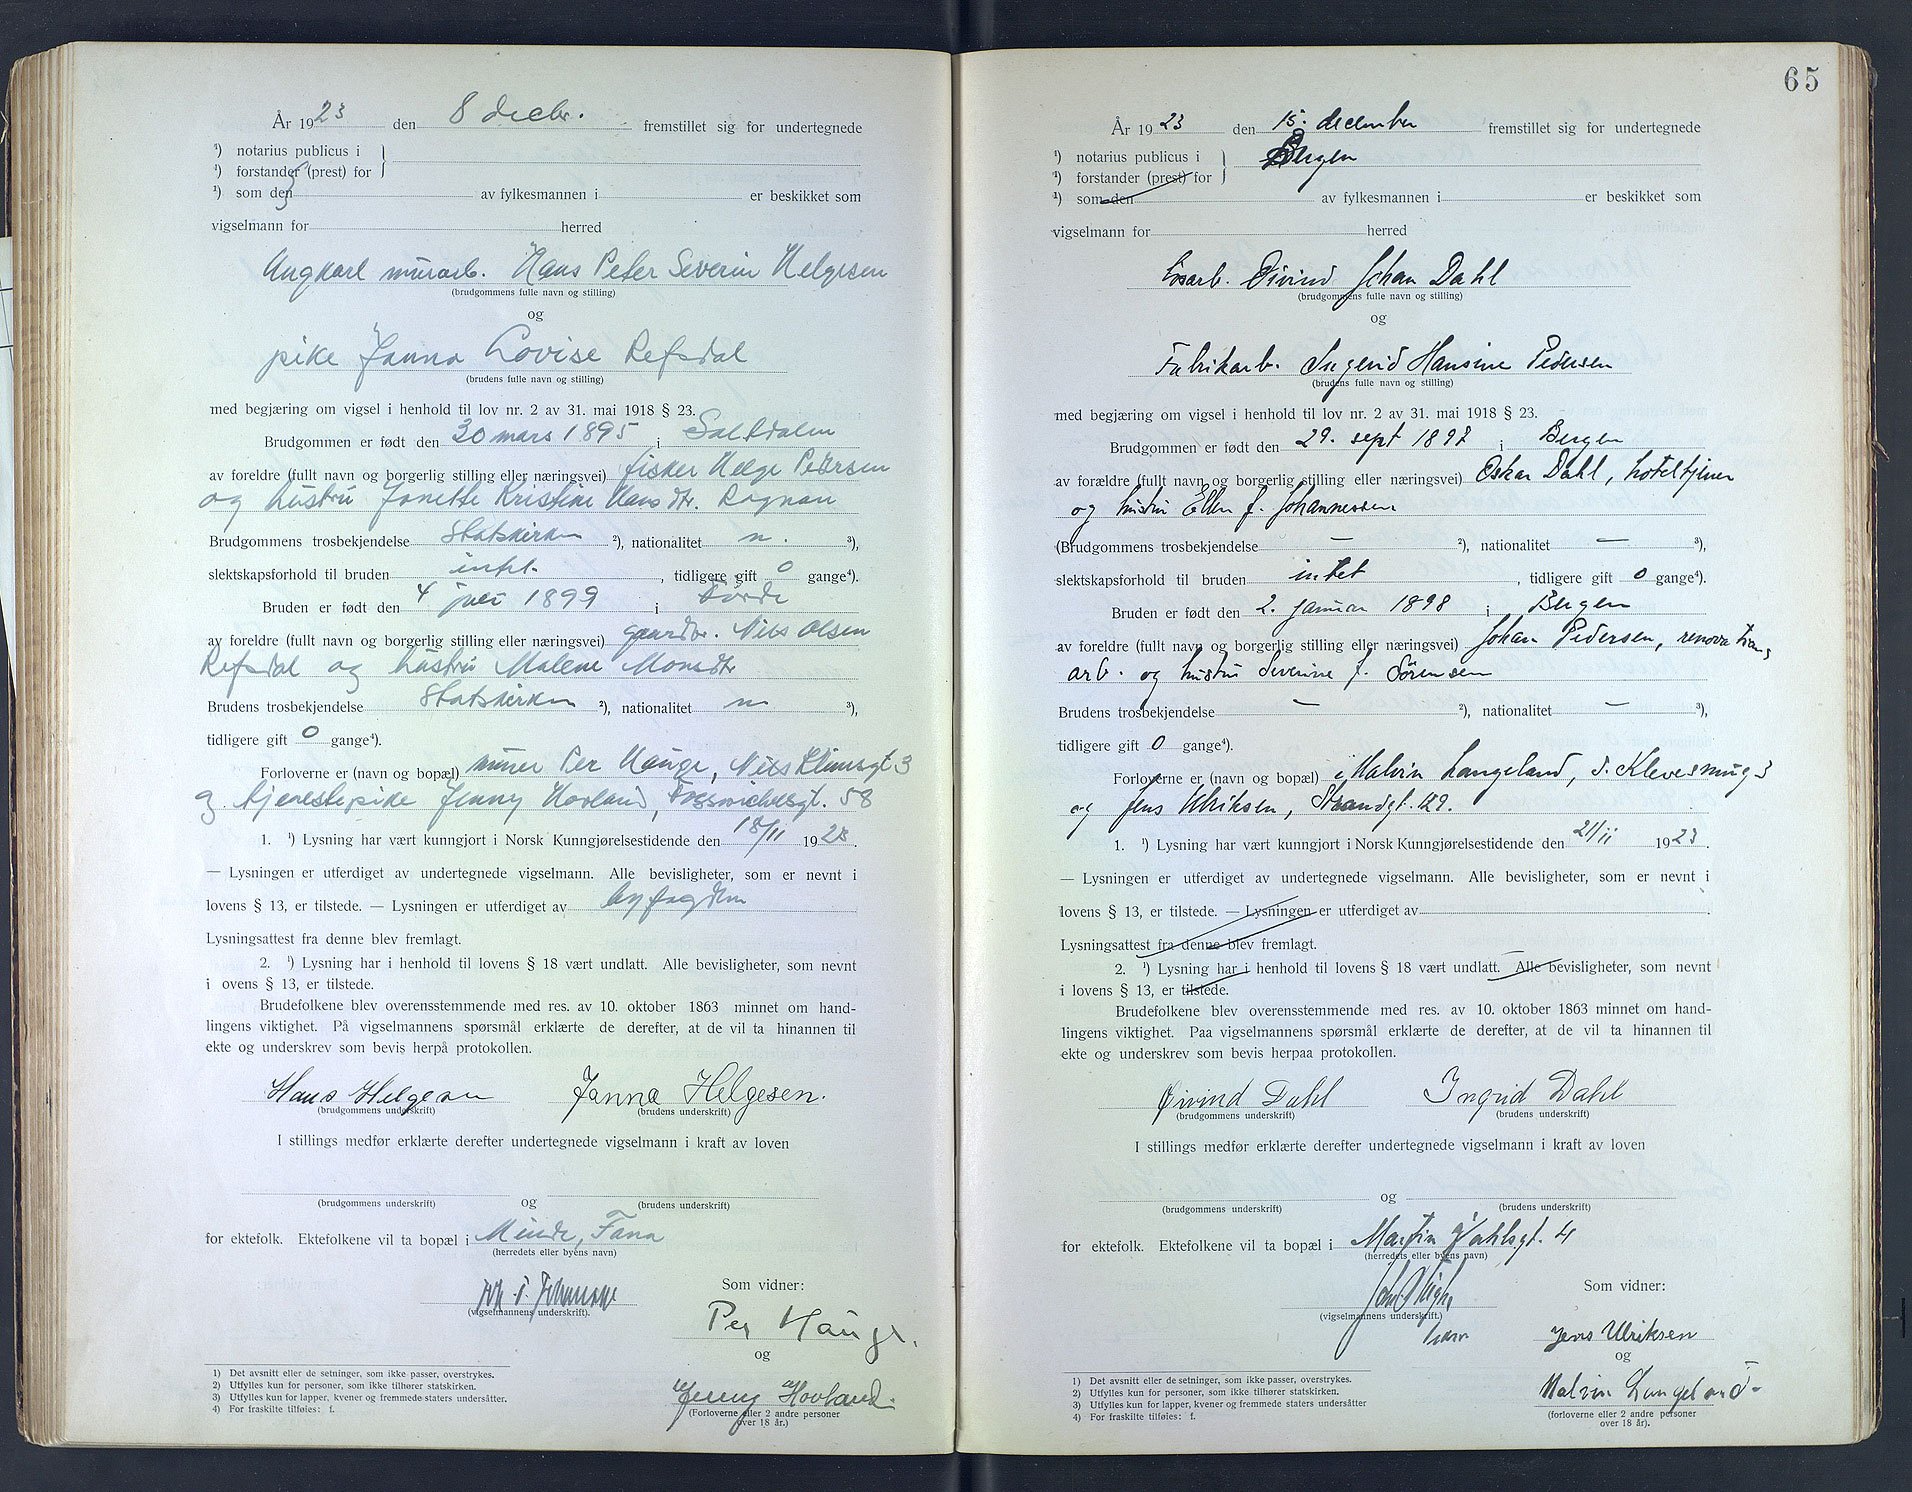 År 1923 den 8 decbr. fremstillet sig for undertegnede
¹) notarius publicus i
¹) forstander (prest) for
¹) som den av fylkesmannen i er beskikket som
vigselmann for herred
Ungkarl murarb. Hans Peter Severin Helgesen
(brudgommens fulle navn og stilling)
og
pike Janna Lovise Refsdal
(brudens fulle navn og stilling)
med begjæring om vigsel i henhold til lov nr. 2 av 31. mai 1918 § 23.
Brudgommen er født den 30 mars 1895 i Saltdalen
av foreldre (fullt navn og borgerlig stilling eller næringsvei) fisker Helge Petersen
og hustru Janette Kristine Hansdtr. Rognan
Brudgommens trosbekjendelse Statskirken ²), nationalitet n. ³),
slektskapsforhold til bruden intet. , tidligere gift 0 gange⁴).
Bruden er født den 4 juli 1899 i Förde
av foreldre (fullt navn og borgerlig stilling eller næringsvei) gaardbr. Nils Olsen
Refsdal og hustru Malene Monsdtr
Brudens trosbekjendelse Statskirken ²), nationalitet n ³),
tidligere gift 0 gange⁴).
Forloverne er (navn og bopæl) murer Per Hauge, Nils Klimsgt 3
og tjenestepike Jenny Hovland, Fosswinckelsgt. 58
1. ¹) Lysning har vært kunngjort i Norsk Kunngjørelsestidende den 18/11 1923.
— Lysningen er utferdiget av undertegnede vigselmann. Alle bevisligheter, som er nevnt i
lovens § 13, er tilstede. — Lysningen er utferdiget av byfogden
Lysningsattest fra denne blev fremlagt.
2. ¹) Lysning har i henhold til lovens § 18 vært undlatt. Alle bevisligheter, som nevnt
i ovens § 13, er tilstede.
Brudefolkene blev overensstemmende med res. av 10. oktober 1863 minnet om hand-
lingens viktighet. På vigselmannens spørsmål erklærte de derefter, at de vil ta hinannen til
ekte og underskrev som bevis herpå protokollen.
Hans Helgesen Janna Helgesen.
(brudgommens underskrift) (brudens underskrift)
I stillings medfør erklærte derefter undertegnede vigselmann i kraft av loven
og
(brudgommens underskrift) (brudens underskrift)
for ektefolk. Ektefolkene vil ta bopæl i Minde, Fana
(herredets eller byens navn)
Som vidner:
(vigselmannens underskrift).
Per Hauge.
og
Jenny Hovland.
(Forloverne eller 2 andre personer
over 18 år.)
1) Det avsnitt eller de setninger, som ikke passer, overstrykes.
2) Utfylles kun for personer, som ikke tilhører statskirken.
3) Utfylles kun for lapper, kvener og fremmede staters undersåtter.
4) For fraskilte tilføies: f.
65
År 1923 den 15. december fremstillet sig for undertegnede
¹) notarius publicus i Bergen
¹) forstander (prest) for
¹) som den av fylkesmannen i er beskikket som
vigselmann for herred
Løsarb. Øivind Johan Dahl
(brudgommens fulle navn og stilling)
og
Fabrikarb. Ingerid Hansine Pedersen
(brudens fulle navn og stilling)
med begjæring om vigsel i henhold til lov nr. 2 av 31. mai 1918 § 23.
Brudgommen er født den 29. sept 1897 i Bergen
av forældre (fullt navn og borgerlig stilling eller næringsvei) Oskar Dahl, hoteltjener
og hustru Ellen f. Johannessen
(Brudgommens trosbekjendelse — ²), nationalitet — ³),
slektskapsforhold til bruden intet , tidligere gift 0 gange⁴).
Bruden er født den 2. januar 1898 i Bergen
av foreldre (fullt navn og borgerlig stilling eller næringsvei) Johan Pedersen, renovations
arb. og hustru Severine f. Sørensen
Brudens trosbekjendelse — ²), nationalitet — ³),
tidligere gift 0 gange⁴).
Forloverne er (navn og bopæl) Malvin Langeland, d. Klevesmug 3
og Jens Ulriksen, Strandgt. 129.
1. ¹) Lysning har vært kunngjort i Norsk Kunngjørelsestidende den 21/11 1923.
— Lysningen er utferdiget av undertegnede vigselmann. Alle bevisligheter, som er nevnt i
lovens § 13, er tilstede. — Lysningen er utferdiget av
Lysningsattest fra denne blev fremlagt.
2. ¹) Lysning har i henhold til lovens § 18 vært undlatt. Alle bevisligheter, som nevnt
i lovens § 13, er tilstede.
Brudefolkene blev overensstemmende med res. av 10. oktober 1863 minnet om hand-
lingens viktighet. Paa vigselmannens spørsmål erklærte de derefter, at de vil ta hinannen til
ekte og underskrev som bevis herpaa protokollen.
Øivind Dahl Ingrid Dahl
(brudgommens underskrift) (brudens underskrift)
I stillings medfør erklærte derefter undertegnede vigselmann i kraft av loven
og
(brudgommens underskrift) (brudens underskrift)
for ektefolk. Ektefolkene vil ta bopæl i Martin Vahlsgt. 4
(herredets eller byens navn)
Som vidner:
(vigselmannens underskrift.)
Jens Ulriksen
og
Malvin Langeland
(forloverne eller 2 andre personer
over 18 år).
1) Det avsnitt eller de setninger, som ikke passer, overstrykes.
2) Utfylles kun for personer, som ikke tilhører statskirken.
3) Utfylles kun for lapper, kvener og fremmede staters undersåtter
4) For fraskilte tilføies: f.